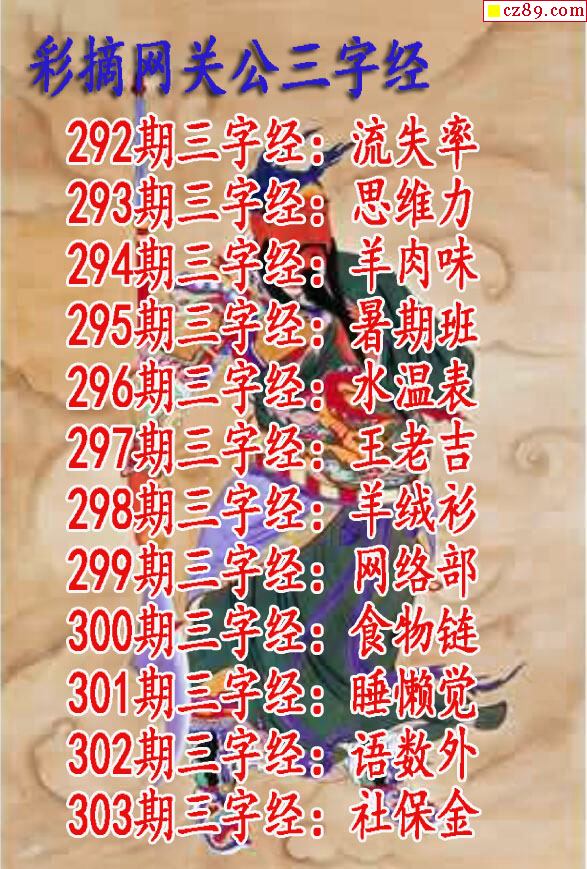 cz89.com
彩摘网关公三字经
292期三字经：流失率
293期三字经：思维力
294期三字经：羊肉味
295期三字经：暑期班
296期三字经：水温表
297期三字经：王老吉
298期三字经：羊绒衫
299期三字经：网络部
300期三字经：食物链
301期三字经：睡懒觉
302期三字经：语数外
303期三字经：社保金